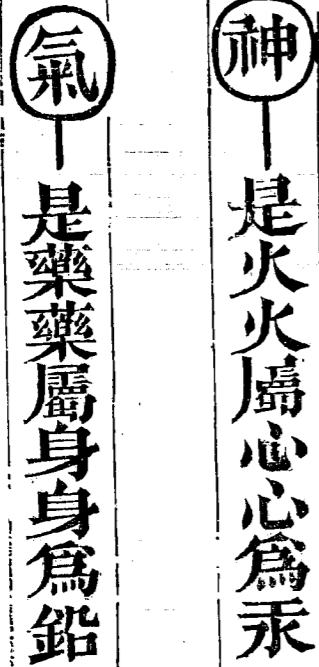 神是火火屬心心爲汞
氣是藥藥屬身身爲鉛